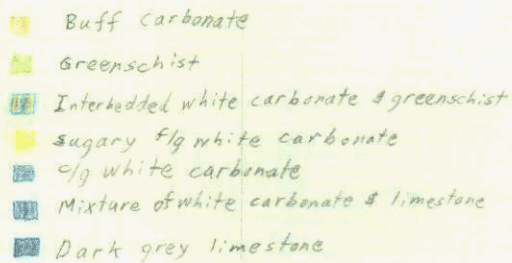 Buff carbonate
Greenschist
Interbedded white carbonate & greenschist
Sugary f/g white carbonate
c/g white carbonate
Mixture of white carbonate & limestone
Dark grey limestone